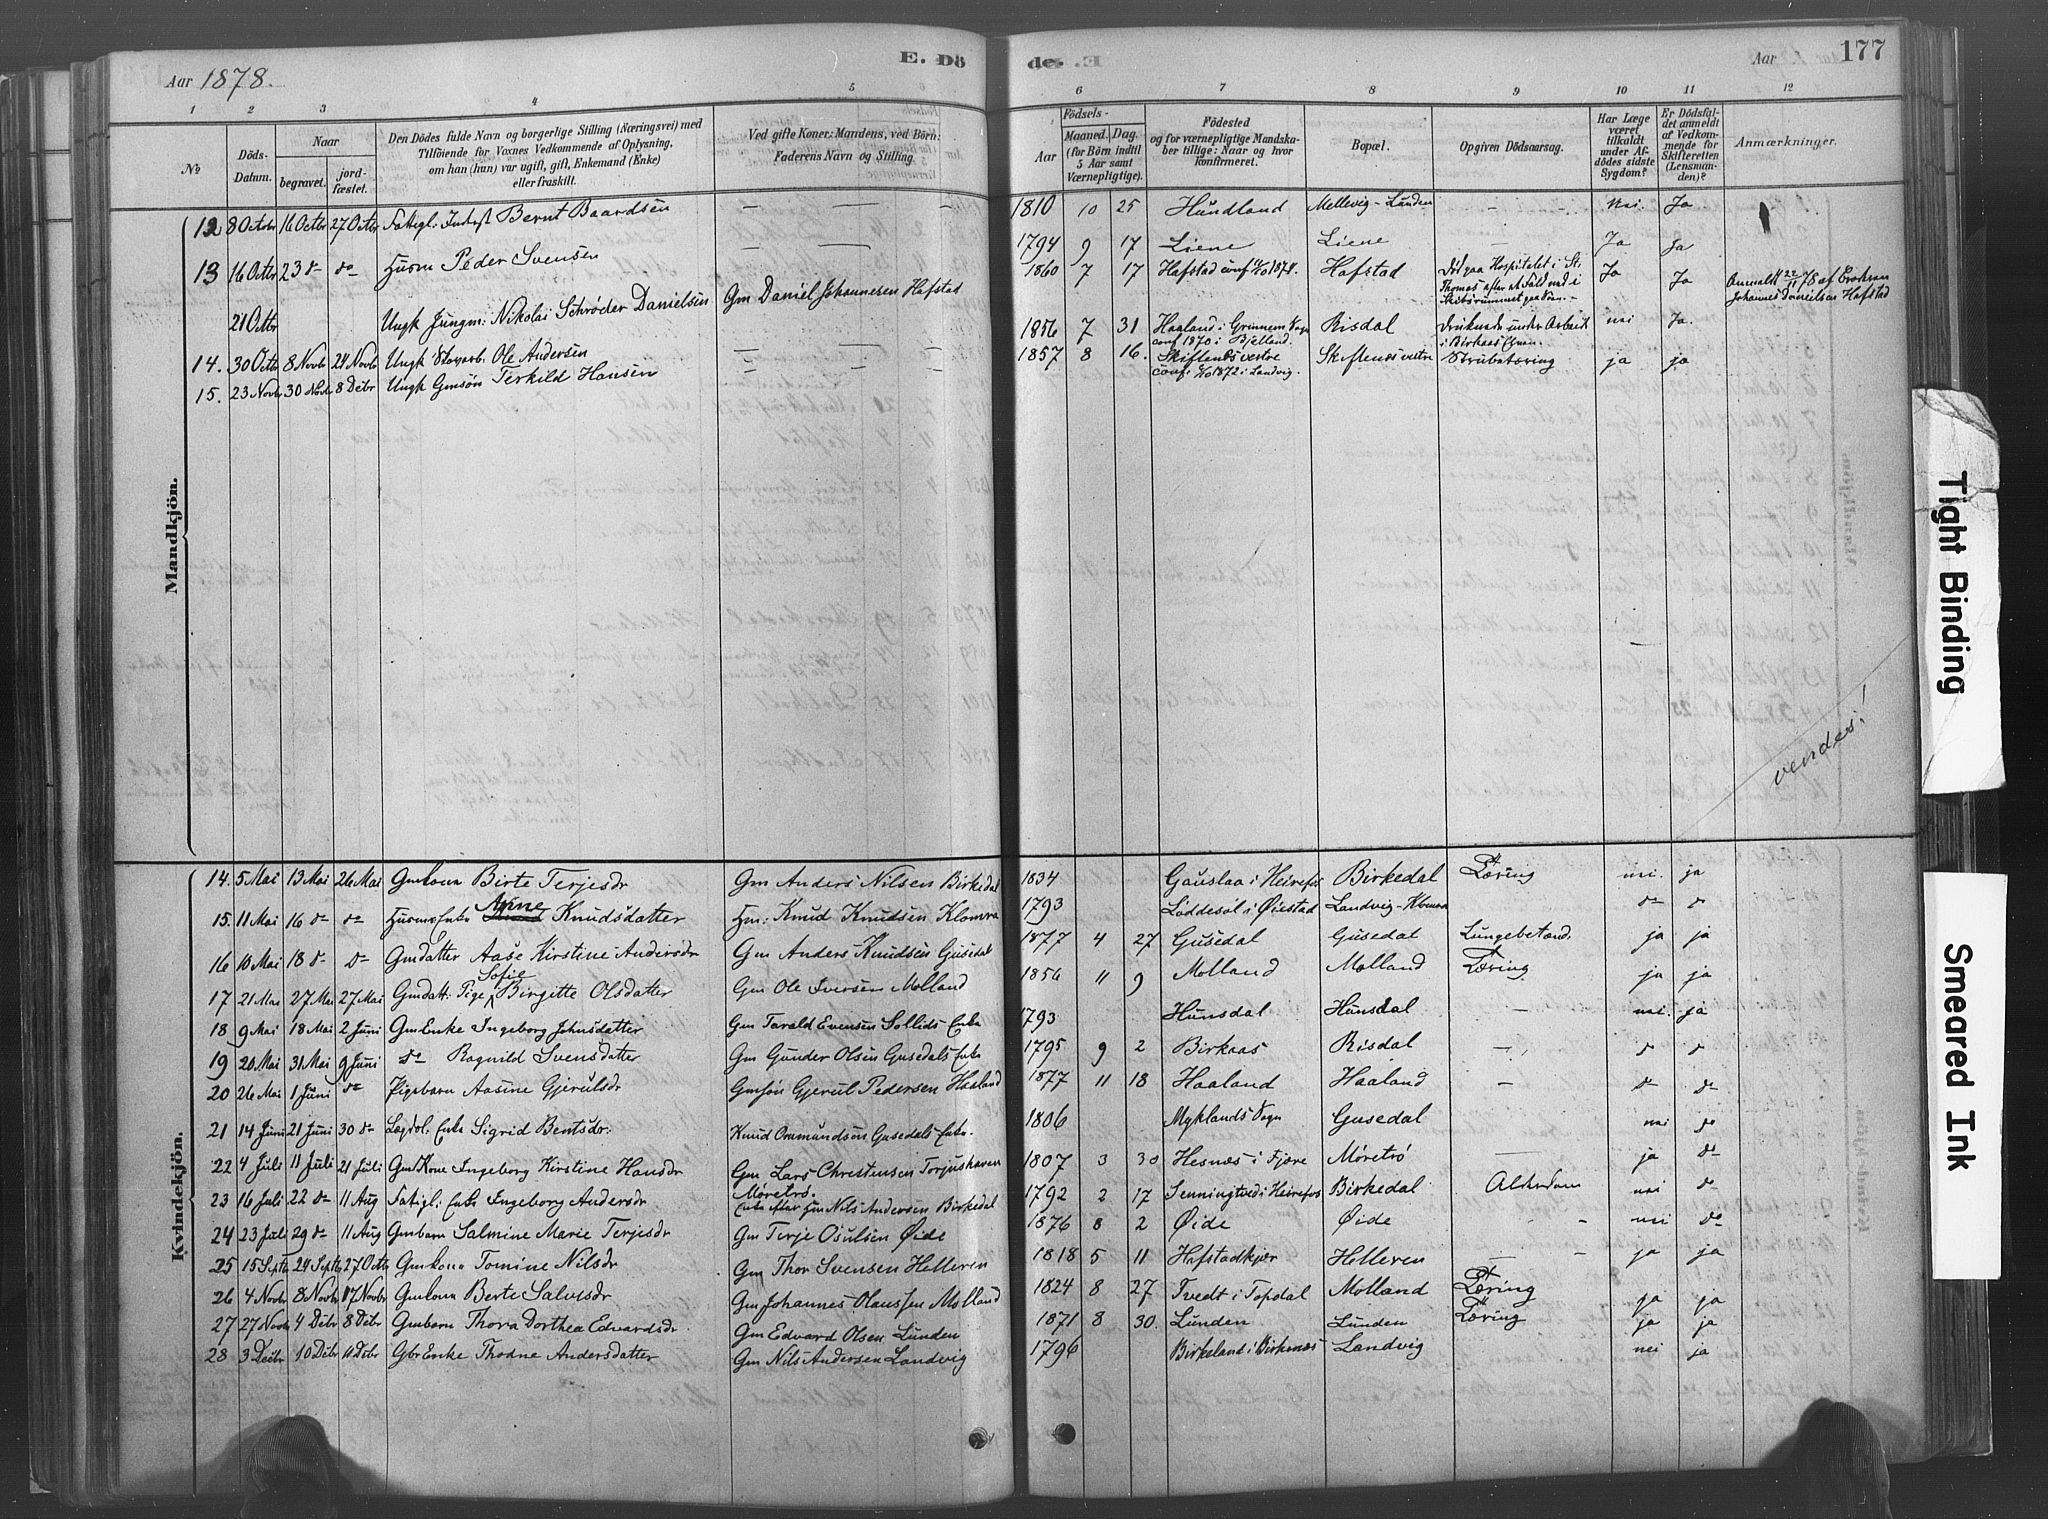 Aar 1878.
E. Dö
de. E
Aar
177
1 2 3 4 5 6 7 8 9 10 11 12
No
Döds-Datum.
Naar
begravet.
jord-fæstet.
Den Dödes fulde Navn og borgerlige Stilling (Næringsvei) med
Tilföiende for Voxnes Vedkommende af Oplysning,
om han (hun) var ugift, gift, Enkemand (Enke)
eller fraskilt.
Ved gifte Koner: Mandens, ved Börn:
Faderens Navn og Stilling.
Födsels-
Aar
Maaned. Dag.
(for Börn indtil
5 Aar samt
Værnepligtige).
Födested
og for værnepligtige Mandska-
ber tillige: Naar og hvor
konfirmeret.
Bopæl.
Opgiven Dödsaarsag.
Har Læge
været
tilkaldt
under Af-
dödes sidste
Sygdom?
Er Dödsfal-
det anmeldt
af Vedkom-
mende for
Skifteretten
(Lensman-
den)?
Anmærkninger.
Mandkjön.
12 8 Octbr 16 Octbr 27 Octbr Fattigl: Inderst Bernt Baardsen — — 1810 10 25 Hundland Mellevig-Lunden - - nei Ja
13 16 Octbr 23 do do Husm Peder Svensen — — 1794 9 17 Liene Liene - Ja Ja
21 Octbr Ungk Jungm: Nikolai Schrøder Danielsen Gm Daniel Johannesen Hafstad 1860 7 17 Hafstad conf 1878. Hafstad Død paa Hospitalet i St. Thomas efter et Fald ned i Skibsrummet Ja Ja Anmeldt 22/11 78 af Broderen Johannes Danielsen Hafstad
14. 30 Octbr 8 Novbr 24 Novbr Ungk Ole Andersen — — 1856 7 31 Haaland i Grinnem Sogn conf 1870 i Bjelland. Risdal Druknede under Arbeide i Birkaas Elven. nei Ja.
15. 23 Novbr 30 Novbr 8 Decbr Ungk Gmsøn Terkild Hansen — — 1857 8 16. Skiftenæs vestre conf 1872 i Landvig. Skiftenæs vestre Strubetæring ja ja
vendes!
Kvindekjön.
14. 5 Mai 13 Mai 26 Mai Gmkona Birte Terjesdr Gm Anders Nilsen Birkedal 1834 Gauslaa i Heirefos Birkedal Tæring nei. ja
15. 11 Mai 16 do do Husm Enke Anne Knudsdatter Hm: Knud Knudsen Klomra 1793 Løddesøl i Øiestad Landvig-Klomra do do
16 10 Mai 18 do do Gmdatter Aase Kirstine Andersdr Gm Anders Knudsen Gusedal 1877 4 27 Gusedal Gusedal Lungebetænd. ja ja
17 21 Mai 27 Mai 27 Mai Gmdatt: Pige Sofie Birgitte Olsdatter Gm Ole Iversen Molland 1856 11 9 Molland Molland Tæring ja ja
18 9 Mai 18 Mai 2 Juni Gm Enke Ingeborg Johnsdatter Gm Tarald Evensen Sollids Enke 1793 Hunsdal Hunsdal - nei. ja
19 20 Mai 31 Mai 9 Juni do Ragnild Svensdatter Gm Gunder Olsen Gusedals Enke 1795 9 2 Birkaas Risdal - do do
20 26 Mai 1 Juni do Pigebarn Aasine Gjerulsdr Gmsøn Gjerul Pedersen Haaland 1877 11 18 Haaland Haaland - do do
21 14 Juni 21 Juni 30 do Lægdsl: Enke Sigrid Bentsdr. Knud Ommundsen Gusedals Enke. 1806 Myklands Sogn Gusedal nei do
22 4 Juli 11 Juli 21 Juli Gm Kone Ingeborg Kirstine Hansdr Gm Lars Christensen Torjushaven Møretrø. 1807 3 30 Hesnæs i Fjære Møretrø ja do
23 16 Juli 22 do 11 Aug Fatigl: Enke Ingeborg Andersdr Enke efter Gm Nils Andersen Birkedal 1792 2 17 Senningtved i Heirefos Birkedal Alderdom nei do
24 23 Juli 29 do 11 Aug Gmbarn Salmine Marie Terjesdr Gm Terje Osulsen Øide 1876 8 2 Øide Øide - nei do
25 15 Septb 24 Septb 27 Octbr Gmkona Tomine Nilsdr Gm Thor Svensen Helleren 1818 5 11 Hafstadkjær Helleren - ja ja
26 4 Novbr 8 Novbr 17 Novbr Gmkona Berte Salvesdr Gm Johannes Olaussen Molland 1824 8 27 Tvedt i Topdal Molland Tæring ja ja
27 27 Novbr 4 Decbr 8 Decbr Gmbarn Thora Dorthea Edvardsdr Gm Edvard Olsen Lunden 1871 8 30. Lunden Lunden Tæring ja ja
28 3 Decbr 10 Decbr 11 Decbr Gbr Enke Thodne Andersdatter Gm Nils Andersen Landvig 1796 Birkeland i Birkenæs Landvig nei ja
Tight Binding
Smeared Ink